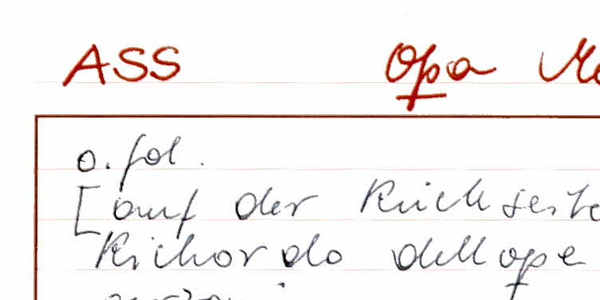 ASS Opa
o. fol.
[auf der Rückseite
Richardo dell ope